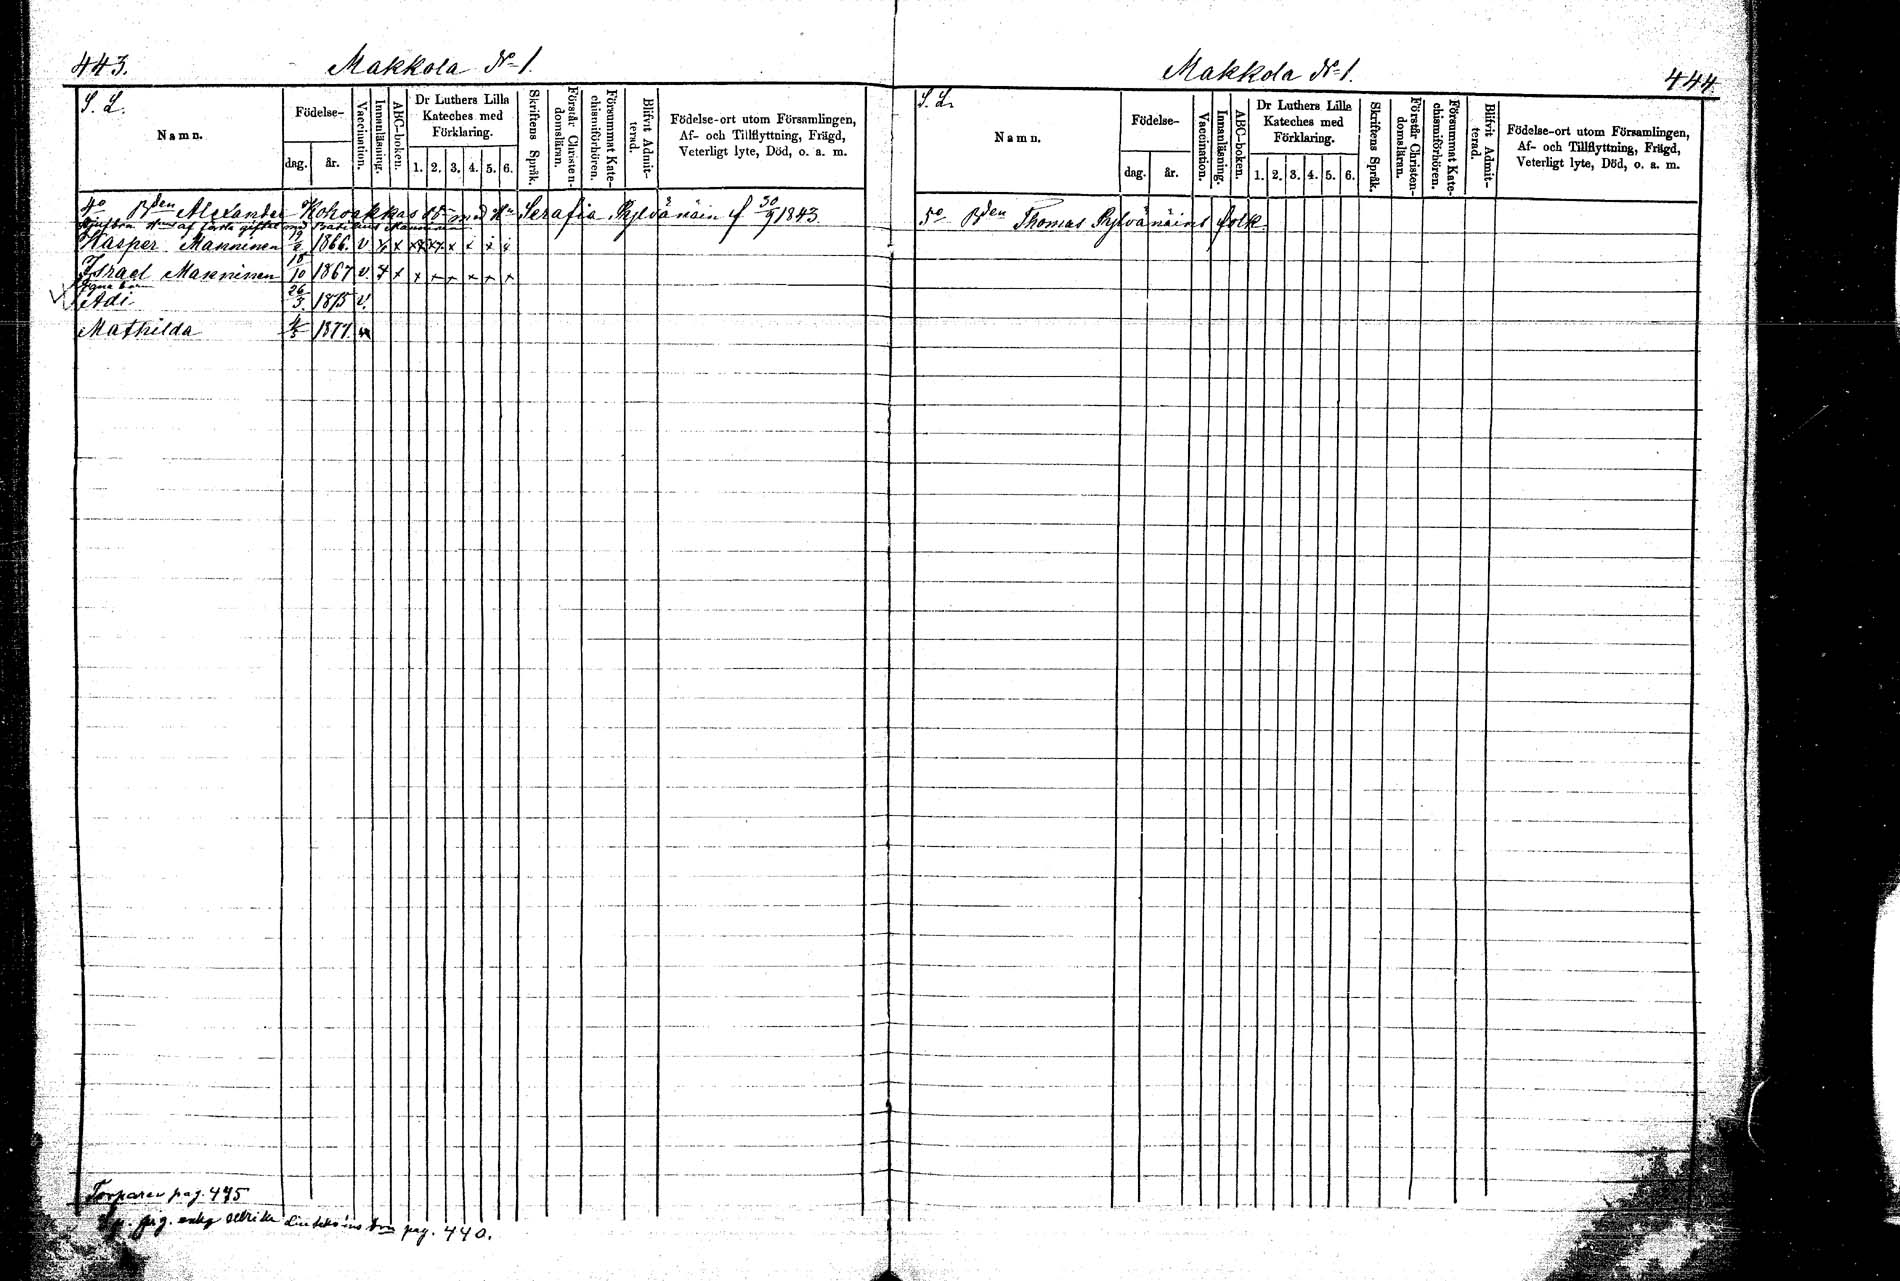 443.
Makkola No 1.
S. L.
Namn.
Födelse-
dag.
år.
Vaccination.
Innanläsning.
ABC-boken.
Dr Luthers Lilla
Kateches med
Förklaring.
1. 2. 3. 4. 5. 6.
Skriftens Språk.
Förstår Christen-
domsläran.
Försummat Kate-
chismiförhören.
Blifvit Admit-
terad.
Födelse-ort utom Församlingen,
Af- och Tillflyttning, Frägd,
Veterligt lyte, Död, o. a. m.
4o Bden Alexander Kokoakkas med Hu Serafia Pylvänäin f 30/9 1843.
af första giftet med Manninen
Kasper Manninen 1866. v x x x x x x
Israel Manninen 18/10 1867 v. x x x x x x x
Egna barn
Adi 26/3. 1875 v.
Mathilda 1877. v
Torparen pag. 475
pag. 440.
Makkola No 1.
444.
S. L.
Namn.
Födelse-
dag.
år.
Vaccination.
Innanläsning.
ABC-boken.
Dr Luthers Lilla
Kateches med
Förklaring.
1. 2. 3. 4. 5. 6.
Skriftens Språk.
Förstår Christen-
domsläran.
Försummat Kate-
chismiförhören.
Blifvit Admit-
terad.
Födelse-ort utom Församlingen,
Af- och Tillflyttning, Frägd,
Veterligt lyte, Död, o. a. m.
5o Bden Thomas Pylvänäins folk.